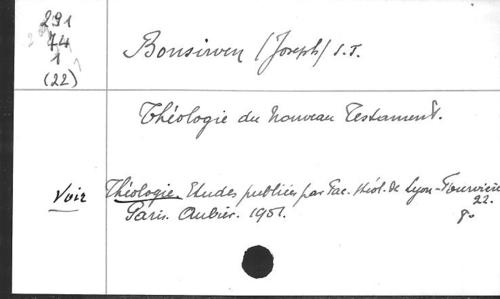 291
74
1
(22)
Bonsirven (Joseph) S.J.
Théologie du Nouveau Testament.
Voir Théologie. Etudes publiées par Fac. théol. de Lyon-Fourvière
22.
Paris. Aubier. 1951. 8°